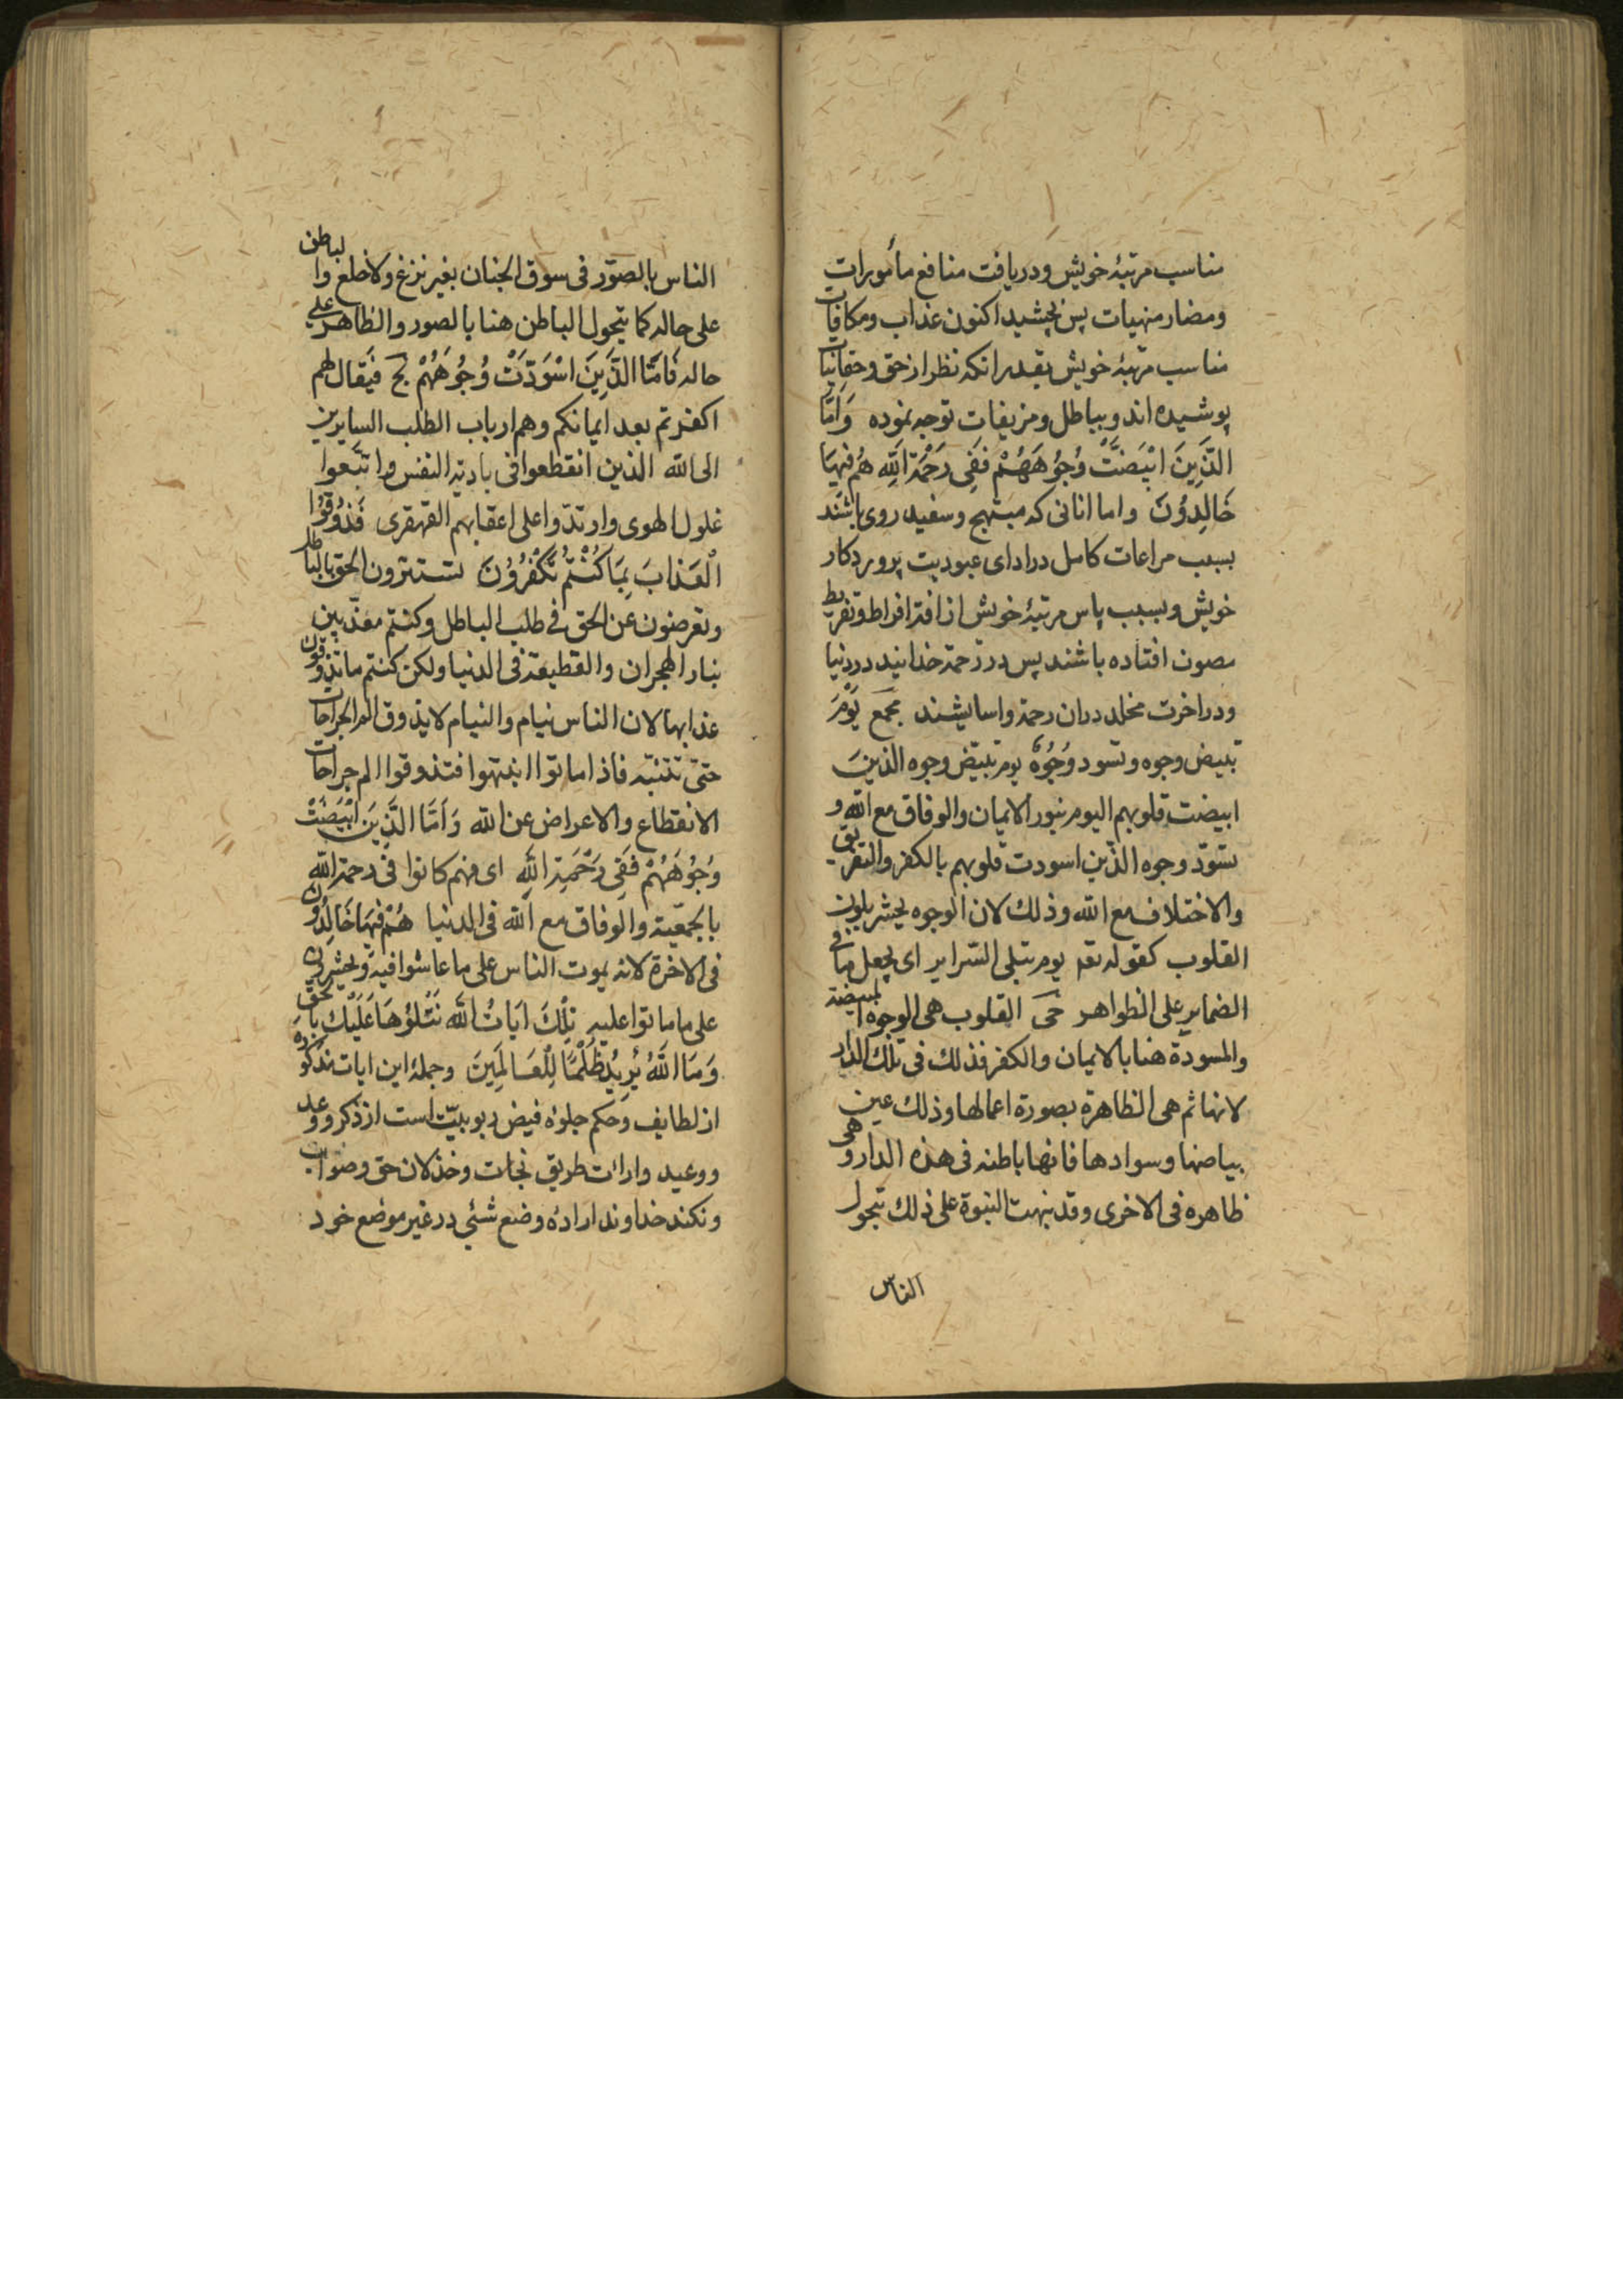 مناسب مرتبهٔ خویش ودریافت منافع مأمورات
ومضار منهیات پس بچشید اکنون عذاب ومکافات
مناسب مرتبهٔ خویش بقدر انکه نظر از حق وحقانیات
پوشیده اند وبباطل ومزیفات توجه نموده وَاَمَّا
الَّذِینَ ابْیَضَّتْ وُجُوهَهُمْ فَفِی رَحْمَةِ اللّهِ هُم فِیهَا
خَالِدُونَ واما انانی که مبتهج وسفید روی باشند
بسبب مراعات کامل در ادای عبودیت پروردکار
خویش وبسبب پاس مرتبهٔ خویش از افة افراط وتفریط
مصون افتاده باشند پس در رحمة خدایند در دنیا
ودر اخرت مخلد دران رحمة واسایشند یَوْمَ
تبیض وجوه وتسود وُجُوهٌ یوم تبیّض وجوه الذین
ابیضت قلوبهم الیوم بنور الایمان والوفاق مع الله و
تسوّد وجوه الذین اسودت قلوبهم بالکفر والتفریق
والاختلاف مع الله وذلك لان الوجوه یحشر بلون
القلوب کقوله تعه یوم تبلی السّرایر ای یجعل ما فی
الضمایر علی الظواهر القلوب هی الوجوه المبیضة
والمسودة هنا بالایمان والکفر فذلك فی تلك الدار
لانها ثم هی الظاهرة بصورة اعمالها وذلك عین
بیاضها وسوادها فانها باطنه فی هذه الدار وهی
ظاهره فی الاخری وقد نبهت النبوة علی ذلك بتحول
الناس
الناس بالصوّر فی سوق الجنان بغیر نزع ولا خلع والباطن
علی حاله کما یتحول الباطن هنا بالصور والظاهر علی
حاله فَاَمَّا الَّذِینَ اسْوَدَّتْ وُجُوهَهُمْ فَیُقال لهم
اکفرتم بعد ایمانکم وهم ارباب الطلب السایرین
الی الله الذین انقطعوا فی بادیة النفس واتبعوا
غلول الهوی وارتدّوا علی اعقابهم القهقری فَذُوقُوا
الْعَذَابَ بِمَا کُنْتُمْ تَکْفُرُونَ تستترون الحق بالباطل
وتعرضون عن الحق فی طلب الباطل وکنتم معذبین
بنار الهجران والقطیعة فی الدنیا ولکن کنتم ما تذوقون
عذابها لان الناس نیام والنیام لا یذوق الم الجراحات
حتیّ تنتبه فاذا ماتوا انتبهوا فتذوقوا الم جراحات
الانقطاع والاعراض عن الله وَاَمَّا الَّذِینَ ابْیَضَّتْ
وُجُوهَهُمْ فَفِی رَحْمَةِ اللّهِ ای فهم کانوا فی رحمة الله
بالجمعیّة والوفاق مع الله فی الدنیا هُمْ فِیهَا خَالِدُون
فی الاخرة لانه یموت الناس علی ما عاشوا فیه ویحشرون
علی ما ماتوا علیه تِلْكَ ایَاتُ اللّهِ نَتْلُوهَا عَلَیْكَ بالحق
وَمَا اللّهُ یُرِیدُ ظُلْمًا لِلْعَالَمِینَ وجملهٔ این ایات مذکوره
از لطایف وحکم جلوهٔ فیض ربوبیّت است از ذکر وعد
ووعید وارائت طریق نجات وخذلان حق وصواب
ونکند خداوند ارادهٔ وضع شئی در غیر موضع خود